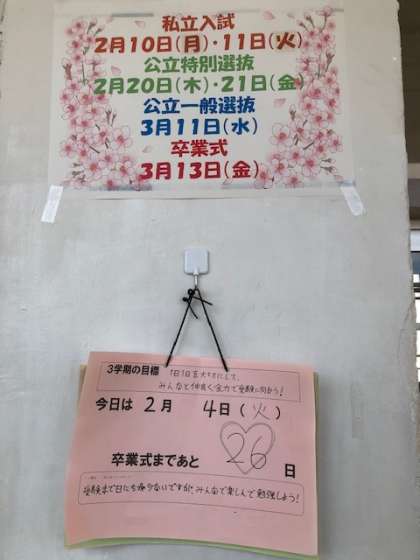 私立入試
2月10日(月)・11日(火)
公立特別選抜
2月20日(木)・21日(金)
公立一般選抜
3月11日(水)
卒業式
3月13日(金)
3学期の目標 1日1日を大切にして、
みんなと仲良く全力で受験に向かう!
今日は 2月 4日(火)
卒業式まであと 26 日
受験まで日にち少ないですが、みんなで楽しんで勉強しよう!